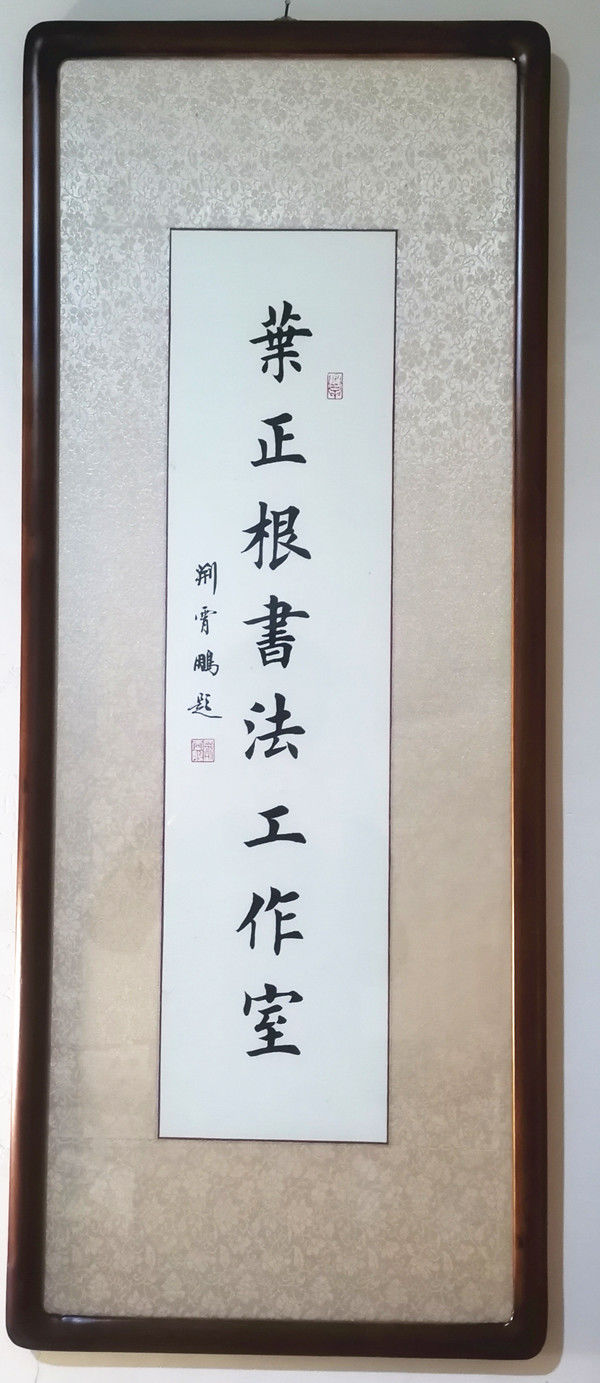 葉正根書法工作室
荆霄鵬題